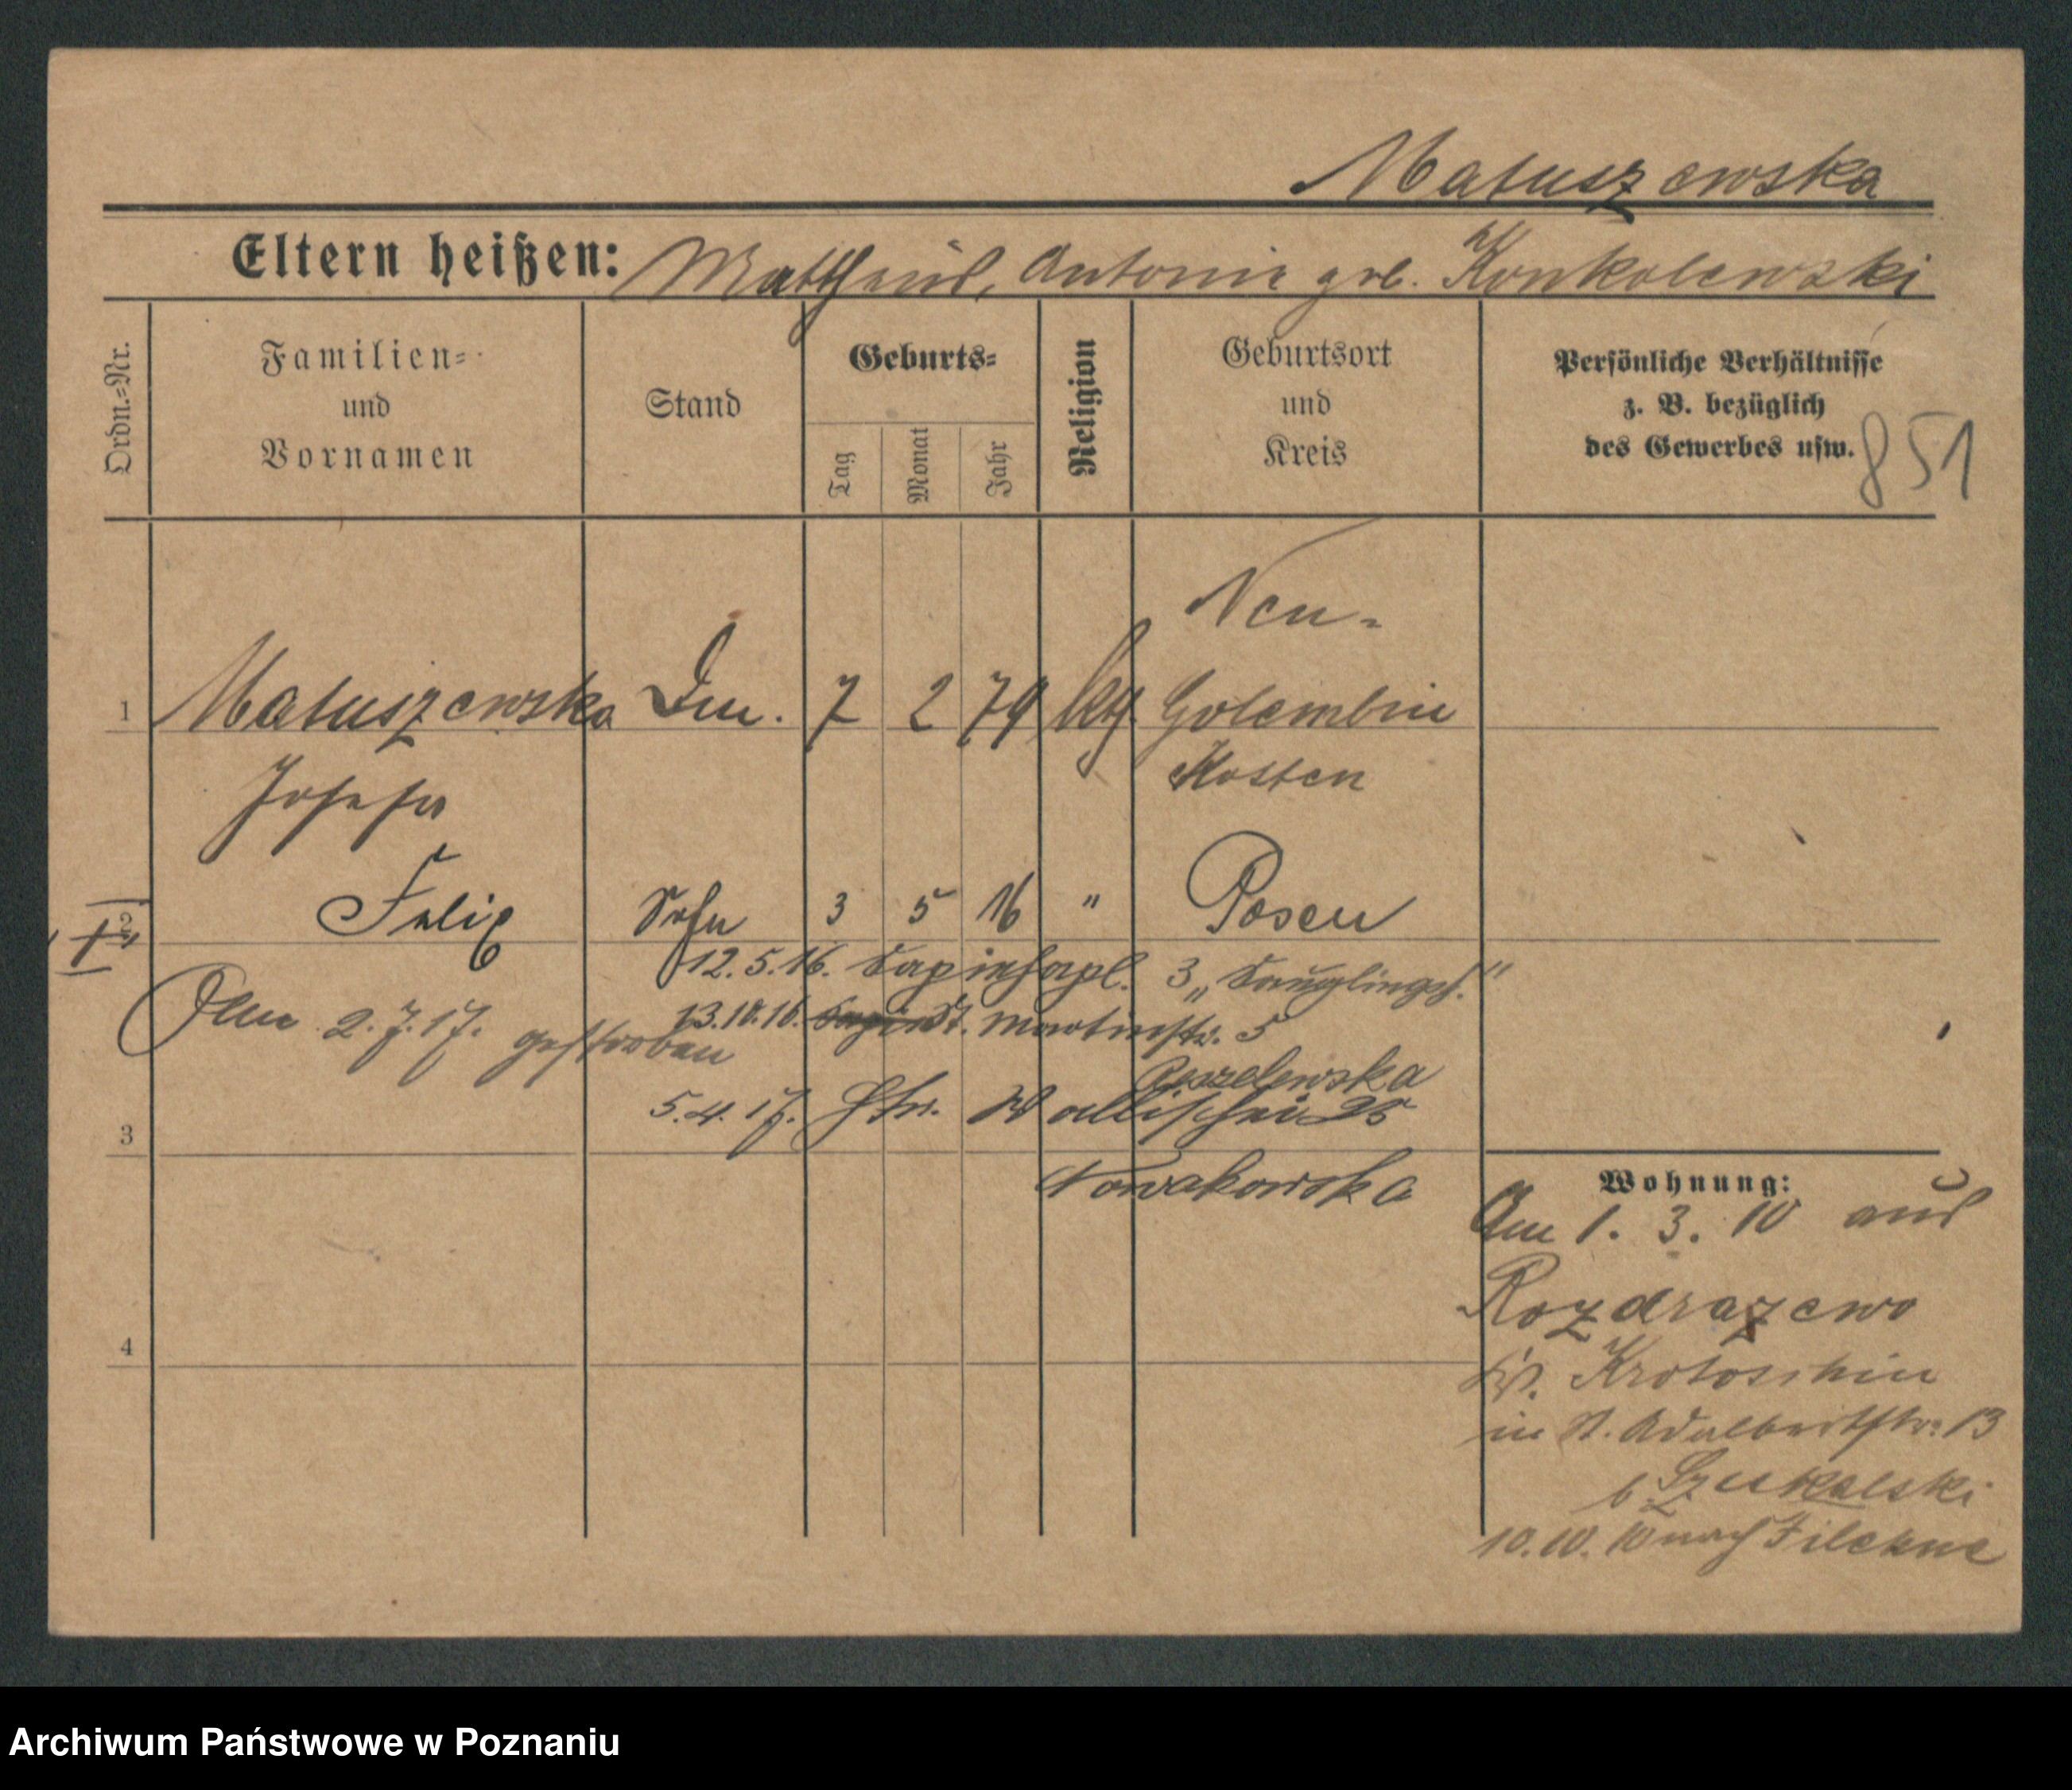 Matuszewska
Eltern heißen: Matthäus, Antonie geb. Konkolewski
Ordn.=Nr.
Familien=
und
Vornamen
Stand
Geburts=
Tag
Monat
Jahr
Religion
Geburtsort
und
Kreis
Persönliche Verhältnisse
z. B. bezüglich
des Gewerbes usw.
851
Neu-
1 Matuszewska 7 2 79 kth. Golembin
Josefa Kosten
2 Felix Sohn 3 5 16 " Posen
12.5.16. Sapiehapl. 3 „Säuglingsh."
Am 2.7.17. gestorben
13.10.16. St. Martinstr. 5
5.4.17. Wallischei 25
3
Nowakowska
4
Wohnung:
Am 1. 3. 10 aus
Rozdrazewo
Kr. Krotoschin
in St. Adalbertstr. 13
b Szukalski
10.10.10 nach Filehne
Archiwum Państwowe w Poznaniu